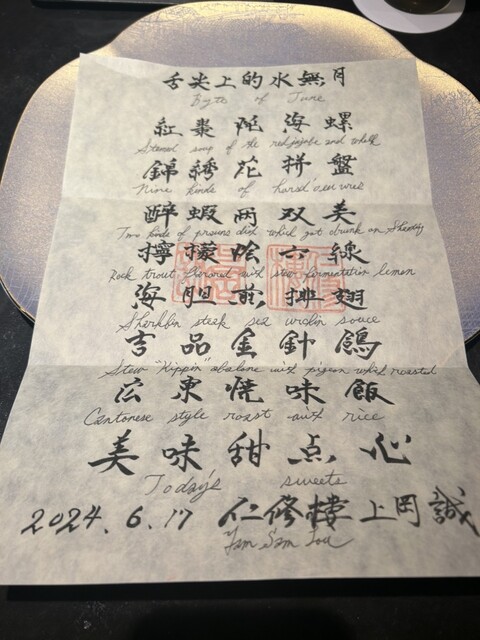 舌尖上的水無月
Byte of June
紅棗炖海螺
Steamed soup of the red jujube and whelk
錦綉花拼盤
Nine kinds of hors d'oeuvres
醉蝦両双美
Two kinds of prawns dish which got drunk on Shentiy
檸檬烩六線
Rock trout flavored with stew fermentation lemon
海胆煎排翅
Sharkfin steak sea urchin souce
吉品金針鴿
Stew "Kippin" abalone with pigeon which roasted
広東焼味飯
Cantonese style roast with rice
美味甜点心
Today's sweets
2024.6.17 仁修樓 上岡誠
Yan Sau Lou